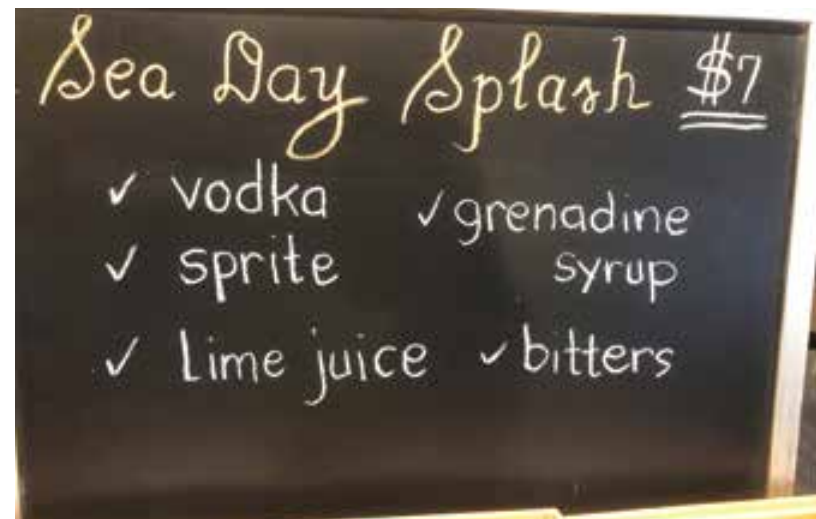 Sea Day Splash $7
✓ vodka
✓ sprite
✓ lime juice
✓ grenadine
syrup
✓ bitters